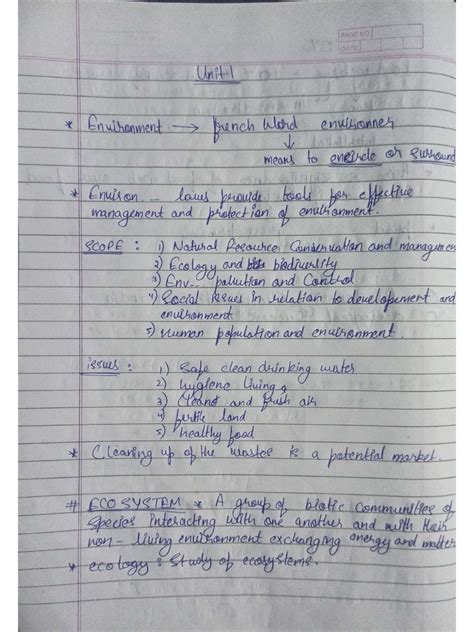 Unit 1
* Environment → french word environner
↓
means to encircle or surround
* Environ.. laws provide tools for effective
management and protection of environment.
SCOPE : 1) Natural Resource Conservation and managemen
2) Ecology and biodiversity
3) Env.. pollution and Control
4) Social issues in relation to developement and
environment
5) Human population and environment.
issues : 1) Safe clean drinking water
2) hygiene living
3) Clean and fresh air
4) fertile land
5) healthy food
* Clearing up of the wastes is a potential market.
# ECOSYSTEM * A group of biotic communities of
species interacting with one another and with their
non-living environment exchanging energy and matter
* ecology : Study of ecosystems.